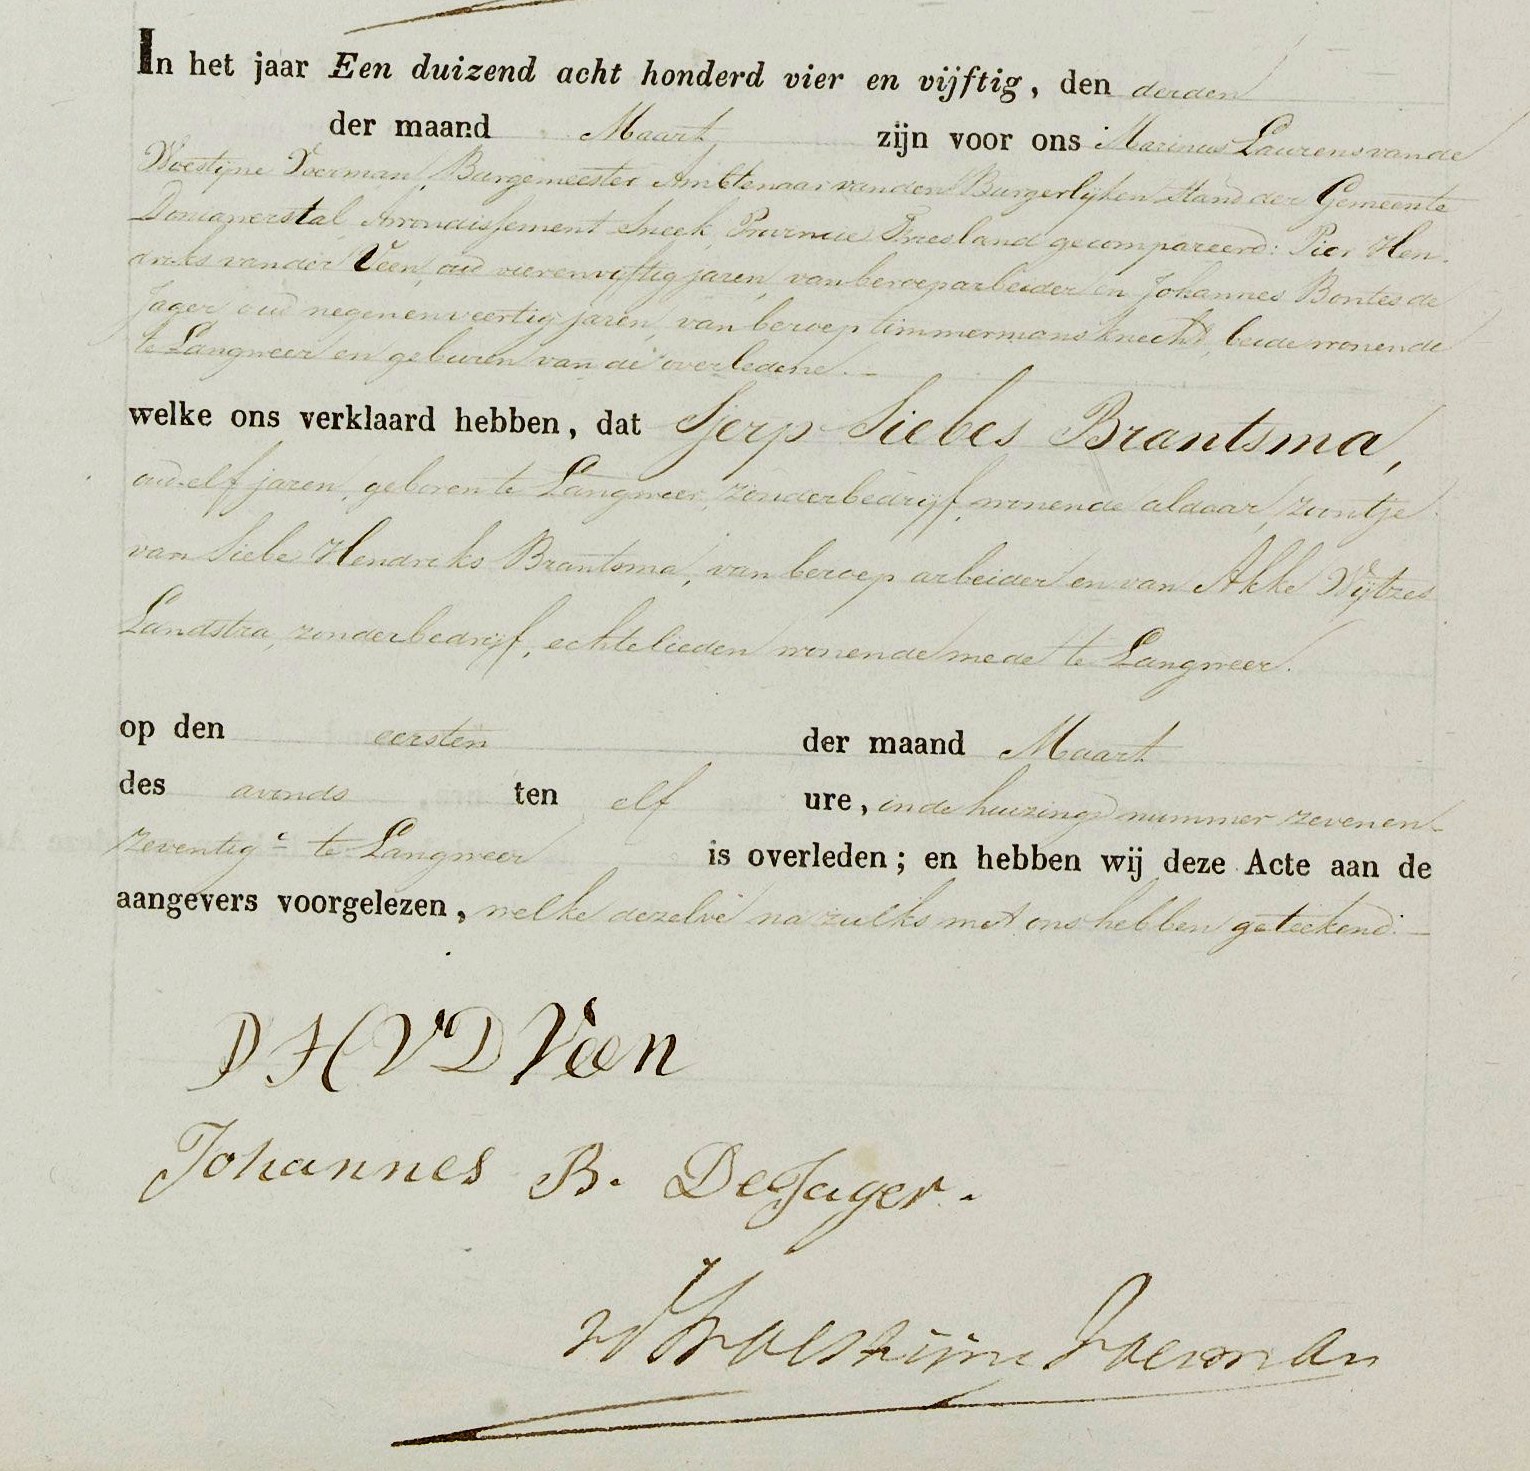 In het jaar Een duizend acht honderd vier en vijftig, den derden
der maand Maart zijn voor ons Marinus Laurens van de
Woestijne Voerman, Burgemeester Ambtenaar van den Burgerlijken Stand der Gemeente
Doniawerstal, Arrondissement Sneek, Provincie Friesland gecompareerd: Pier Hen-
driks van der Veen, oud vierenvijftig jaren, van beroep arbeider en Johannes Bontes de
Jager oud negenenveertig jaren, van beroep timmermansknecht, beide wonende
te Langweer en geburen van de overledene. —
welke ons verklaard hebben, dat Sjerp Siebes Brantsma,
oud elf jaren, geboren te Langweer, zonder bedrijf, wonende aldaar, zoontje
van Siebe Hendriks Brantsma, van beroep arbeider en van Akke Wijtzes
Landstra, zonder bedrijf, echtelieden wonende mede te Langweer.
op den eersten der maand Maart
des avonds ten elf ure, in de huizinge nummer zevenen-
zeventig te Langweer is overleden; en hebben wij deze Acte aan de
aangevers voorgelezen, welke dezelve na zulks met ons hebben geteekend. —
P H V D Veen
Johannes B. De Jager.
vd Woestijne Voerman